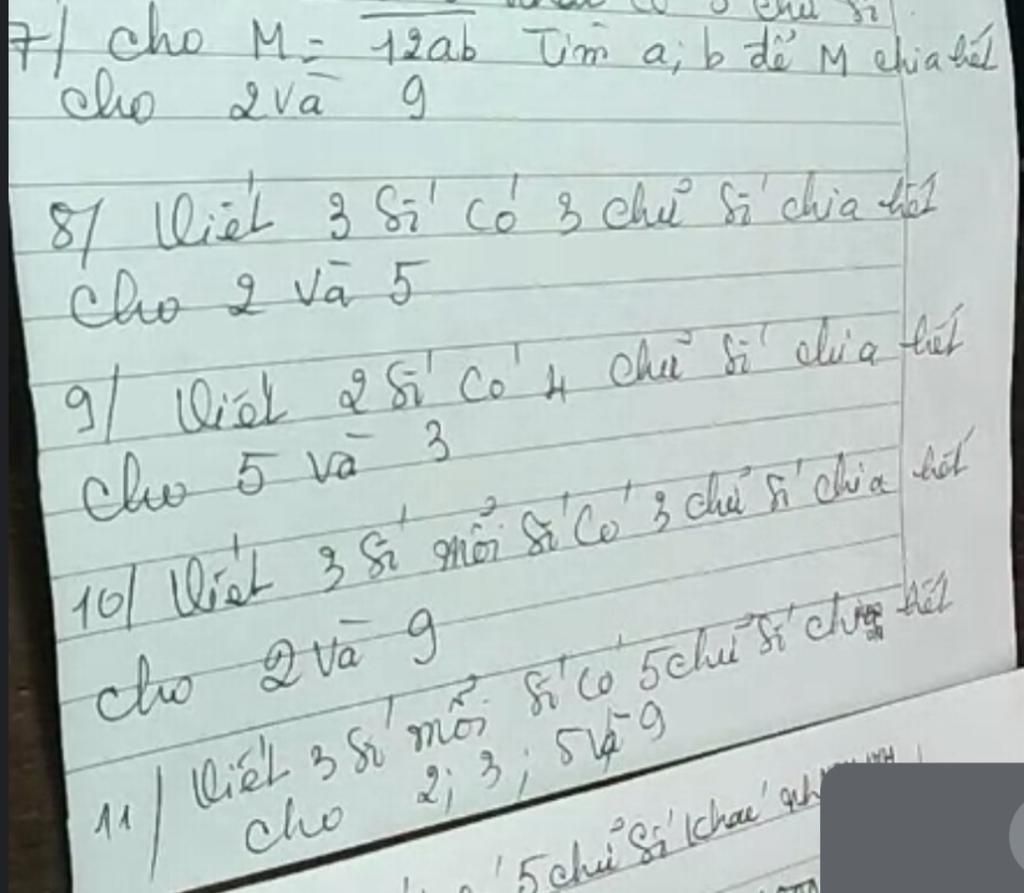 có 3 chữ số
7/ Cho M = 12ab Tìm a; b để M chia hết
cho 2 và 9
8/ Viết 3 số có 3 chữ số chia hết
cho 2 và 5
9/ Viết 2 số có 4 chữ số chia hết
cho 5 và 3
10/ Viết 3 số mỗi số có 3 chữ số chia hết
cho 2 và 9
11/ Viết 3 số mỗi số có 5 chữ số chia hết
cho 2; 3; 5 và 9
5 chữ số khác